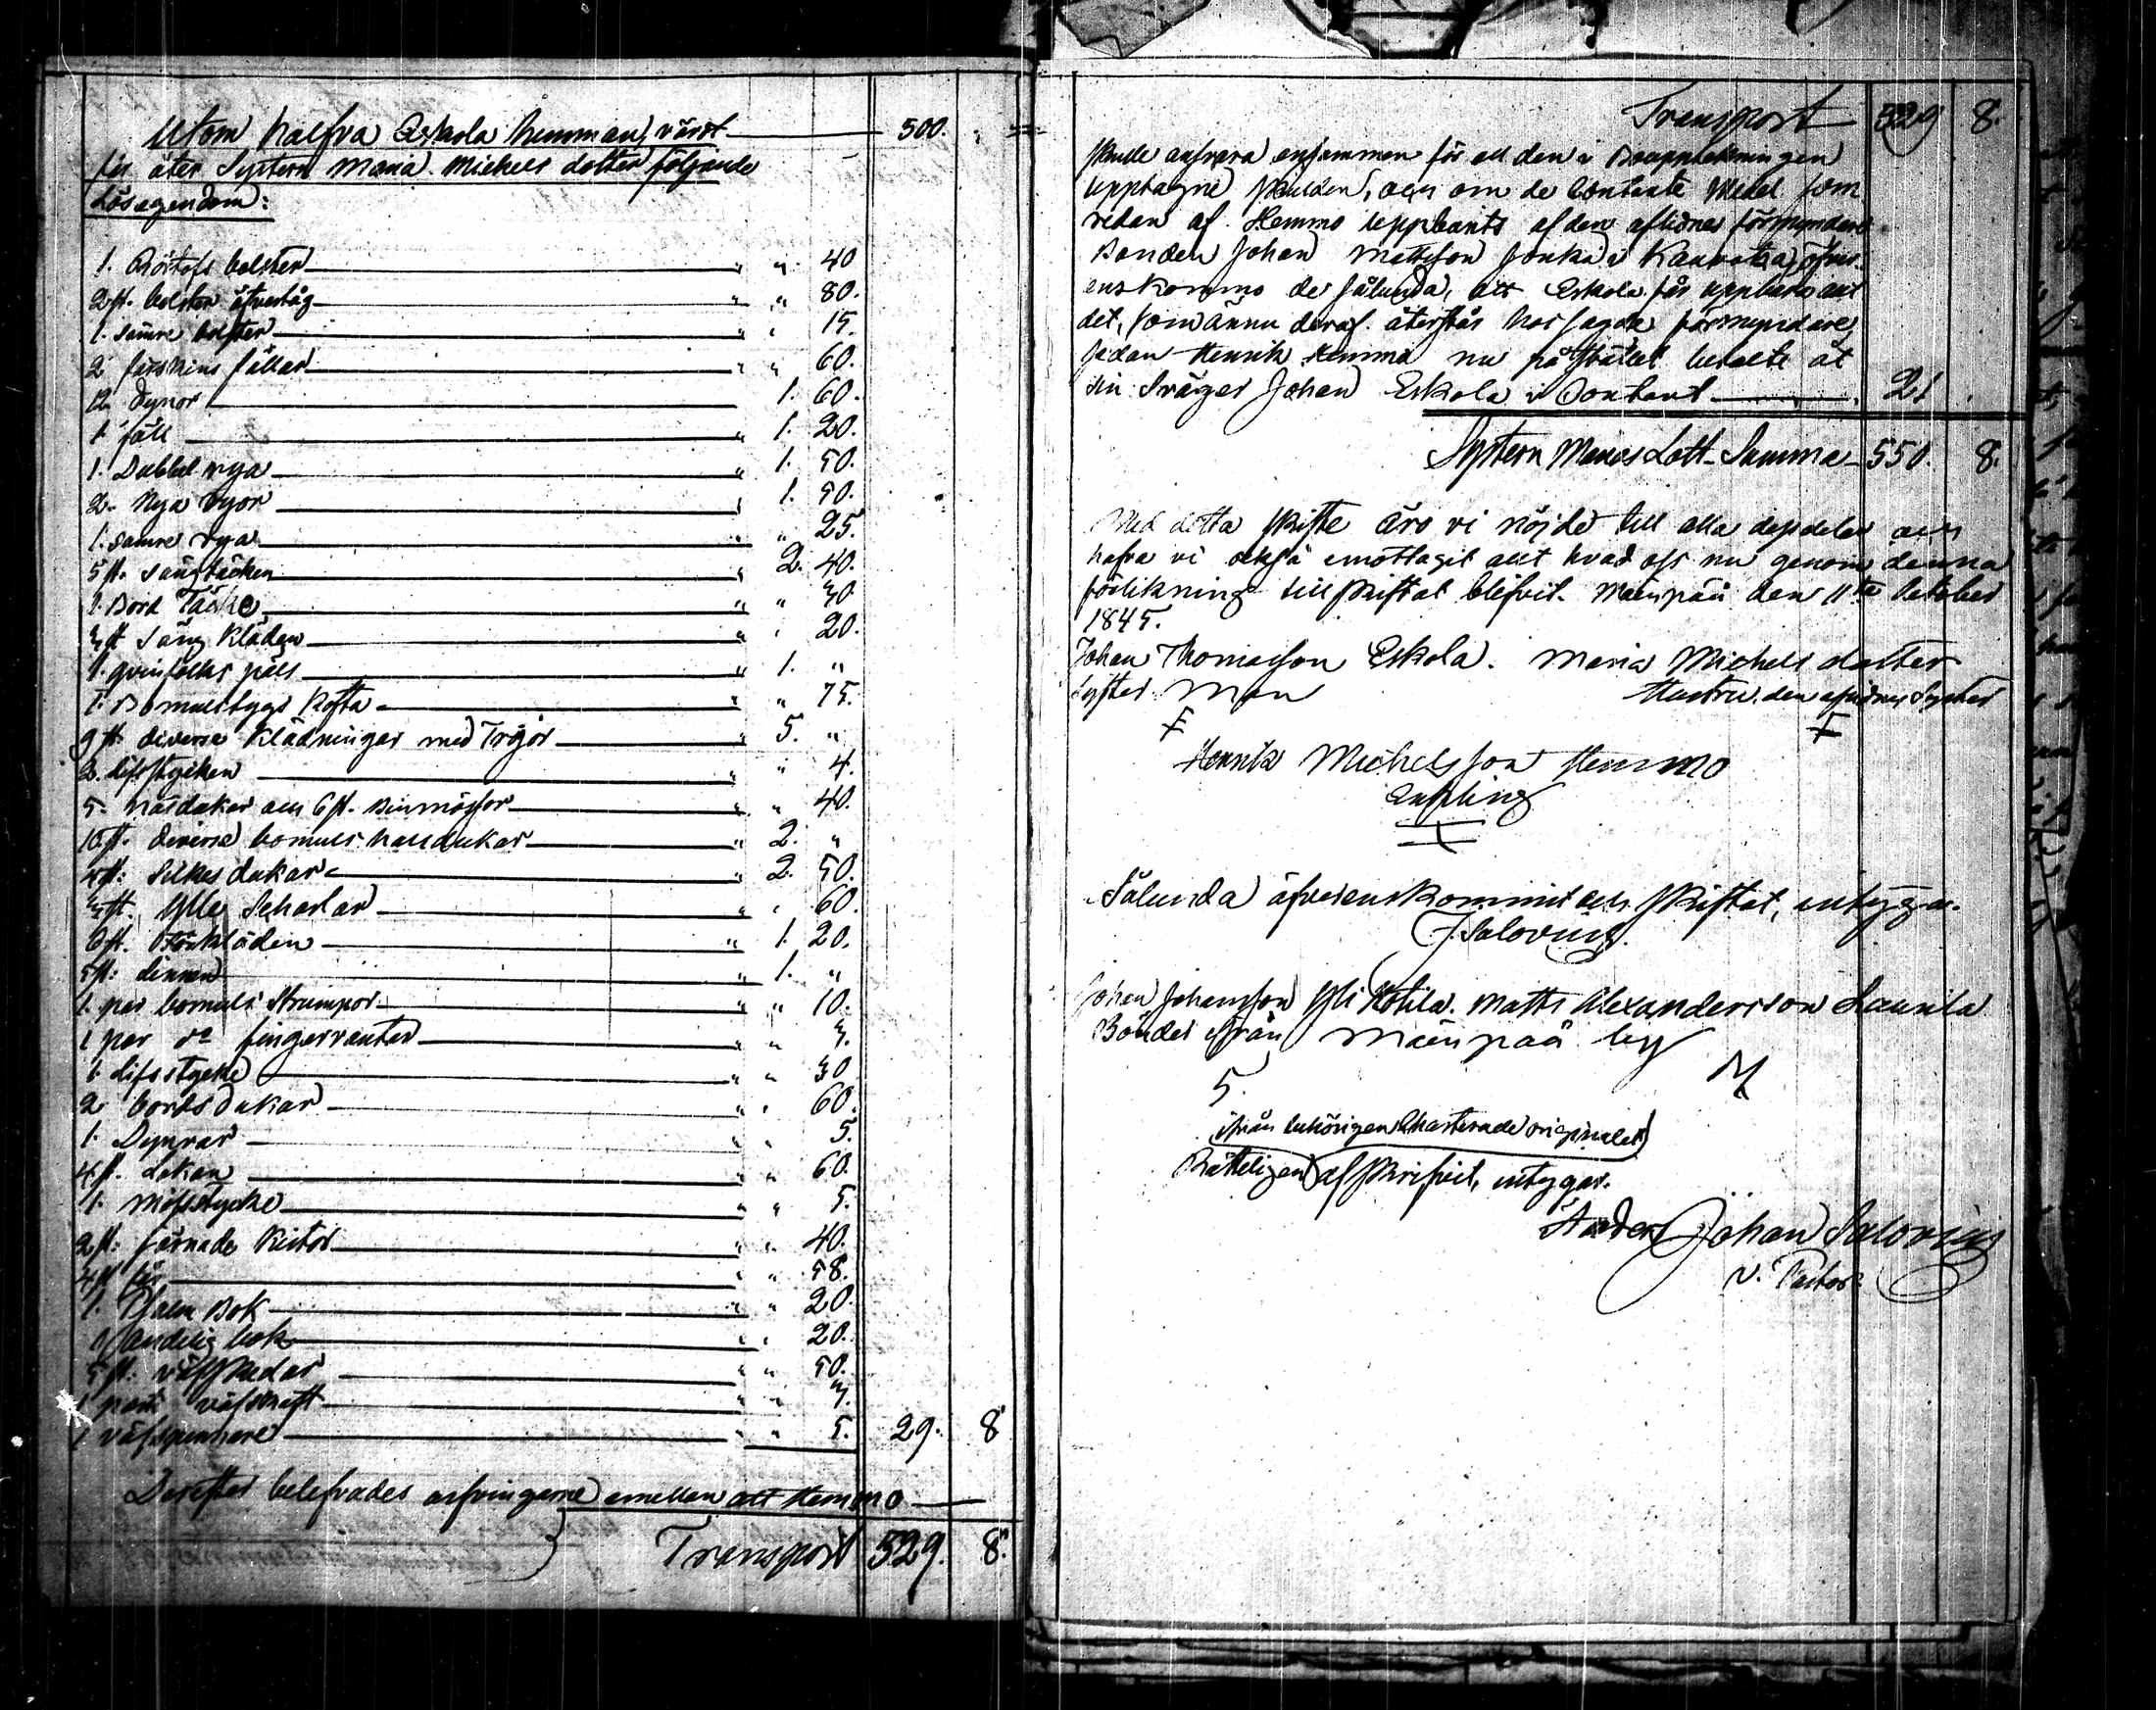 Utom halfva Eskola hemman, värdt 500.
får åter Systern Maria Michels dotter följande
Lösegendom:
1. bolster " " 40
2 st. bolster " " 80.
1. sämre bolster " " 15.
2 fårskins fällar " " 60.
12 Dynor 1. 60.
1 fäll " 1. 20.
1. Dubbel rya " 1. 50.
2. Nya Ryor " 1. 50.
1. sämre rya " " 25.
5 st. sängtäcken " 2. 40.
1. Bord Täcke " " 30
3 st Säng Kläden " " 20.
1. qvinfolks päls " 1. "
1. Bomullstygs Kofta " " 75.
9 st. diverse Klädningar med Tröjor " 5. "
2. lifstycken " " 4.
5. näsdukar och 6 st. Binmössor " " 40.
10 st. diverse bomuls halsdukar " 2. "
4 st: Silkes dukar " 2. 50.
3 st. Ylle Schalar " " 60.
6 st. Förkläden " 1. 20.
5 st: linnen " 1. "
1. par bomuls Strumpor " " 10.
1 par do fingervantar " " 3.
1. lifsstycke " " 30
2 bordsdukar " " 60.
1. Dynvar " " 5.
4 st. Lakan " " 60.
1. Mösstycke " " 5.
2 st: Kistor " " 40.
4 st får " " 58.
1. Psalm Bok " " 20.
1 andelig bok " " 20.
5 st: väfskedar " " 50.
1 par väfskaft " " 3.
1 väfspännare " " 5. 29. 8
Derefter belefvades arfvingarne emellan att Hemmo
Transport 529. 8.
Transport 529 8.
skulle ansvara ensammen för all den i Bouppteckningen
upptagne skulden, och om de Contante Medel som
redan af Hemmo uppburits af den aflidnes förmyndare
Bonden Johan Mattsson Jonka i Kauvatsa, öfver-
enskommo de sålunda, att Eskola får uppbära allt
det, som ännu deraf återstår hos sagde förmyndare,
sedan Henrik Hemmo nu på stället betalte åt
sin Svåger Johan Eskola i Contant 21 .
Systern Marias Lott Summa 550. 8.
Med detta skifte äro vi nöjde till alla dess delar och
hafva vi också emottagit allt hvad oss nu genom denna
förlikning tillskiftat blifvit. Mäenpää den 11te October
1845.
Johan Thomasson Eskola. Maria Michels dotter
syster Man Hustru, den aflidnes Syster
Henrik Michelsson Hemmo
Enkling
Sålunda öfverenskommit och skiftat, intyga.
J. Salovius.
Johan Johansson Yli Kotila. Matts Alexandersson Launila
Bönder ifrån Mäenpää by
Ifrån behörigen Charterade originalet
Rätteligen afskrifvit, intygar.
Anders Johan Salovius
v. Pastor